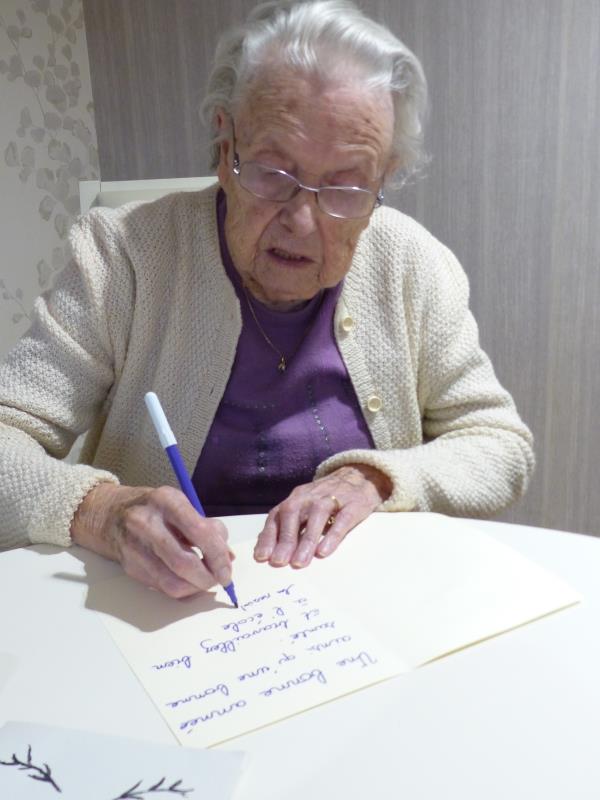 Une bonne année
ainsi qu'une bonne
santé
et travaillez bien
à l'école